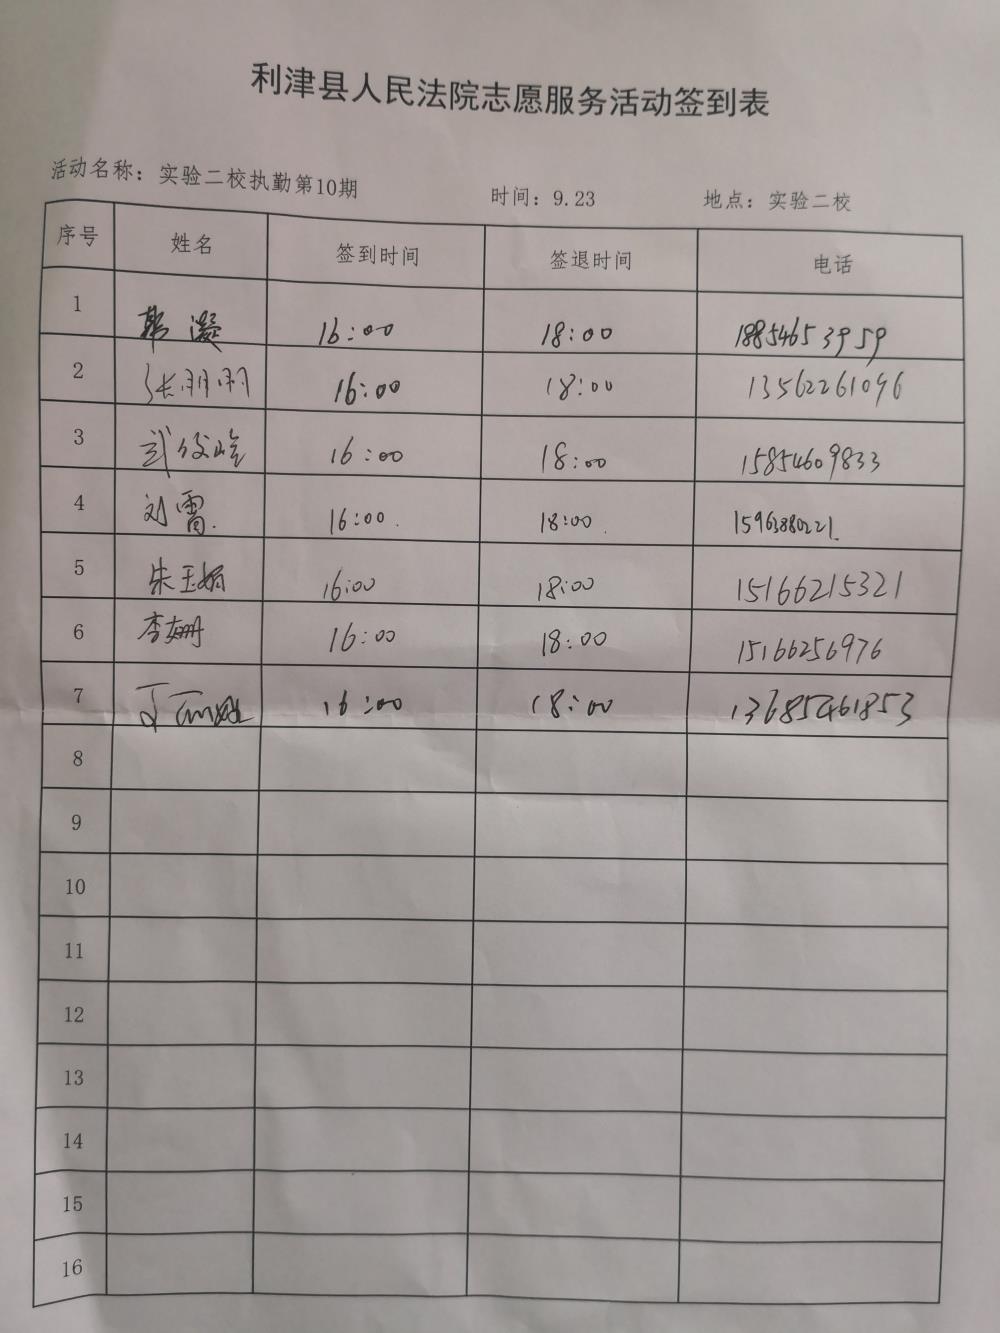 利津县人民法院志愿服务活动签到表
活动名称：实验二校执勤第10期 时间：9.23 地点：实验二校
序号 姓名 签到时间 签退时间 电话
1 16:00 18:00 18854653959
2 张明明 16:00 18:00 13562261096
3 武俊峰 16:00 18:00 15854609833
4 刘雷. 16:00. 18:00. 15963880221.
5 朱玉娟 16:00 18:00 15166215321
6 李姗 16:00 18:00 15166256976
7 16:00 18:00 13685461853
8
9
10
11
12
13
14
15
16